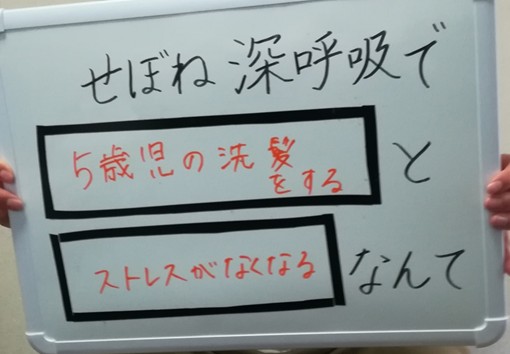 せぼね深呼吸で
5歳児の洗髪
をする
と
ストレスがなくなる
なんて